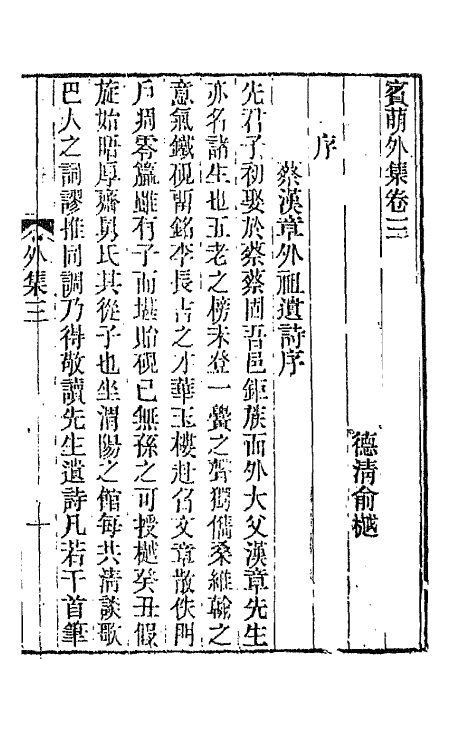 賓萌外集卷三
德清俞樾
序
蔡漢章外祖遺詩序
先君子初娶於蔡蔡固吾邑鉅族而外大父漢章先生
亦名諸生也五老之榜未登一黌之聲獨儁桑維翰之
意氣鐵硯爾銘李長吉之才華玉樓赴召文章散佚門
戶凋零篇雖有子而堪貽硯已無孫之可授樾癸丑假
旋始晤厚齋舅氏其從子也坐渭陽之館每共清談歌
巴人之詞謬推同調乃得敬讀先生遺詩凡若干首筆
外集三
一